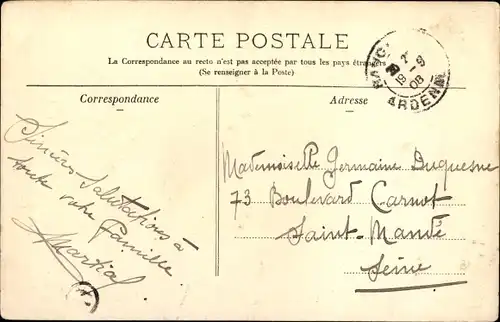 CARTE POSTALE
La Correspondance au recto n'est pas acceptée par tous les pays étrangers
(Se renseigner à la Poste)
Correspondance
Adresse
ARDENN
Sincères Salutations à
toute votre famille
Martial
Mademoiselle Germaine Duquesne
73 Boulevard Carnot
Saint-Mandé
Seine